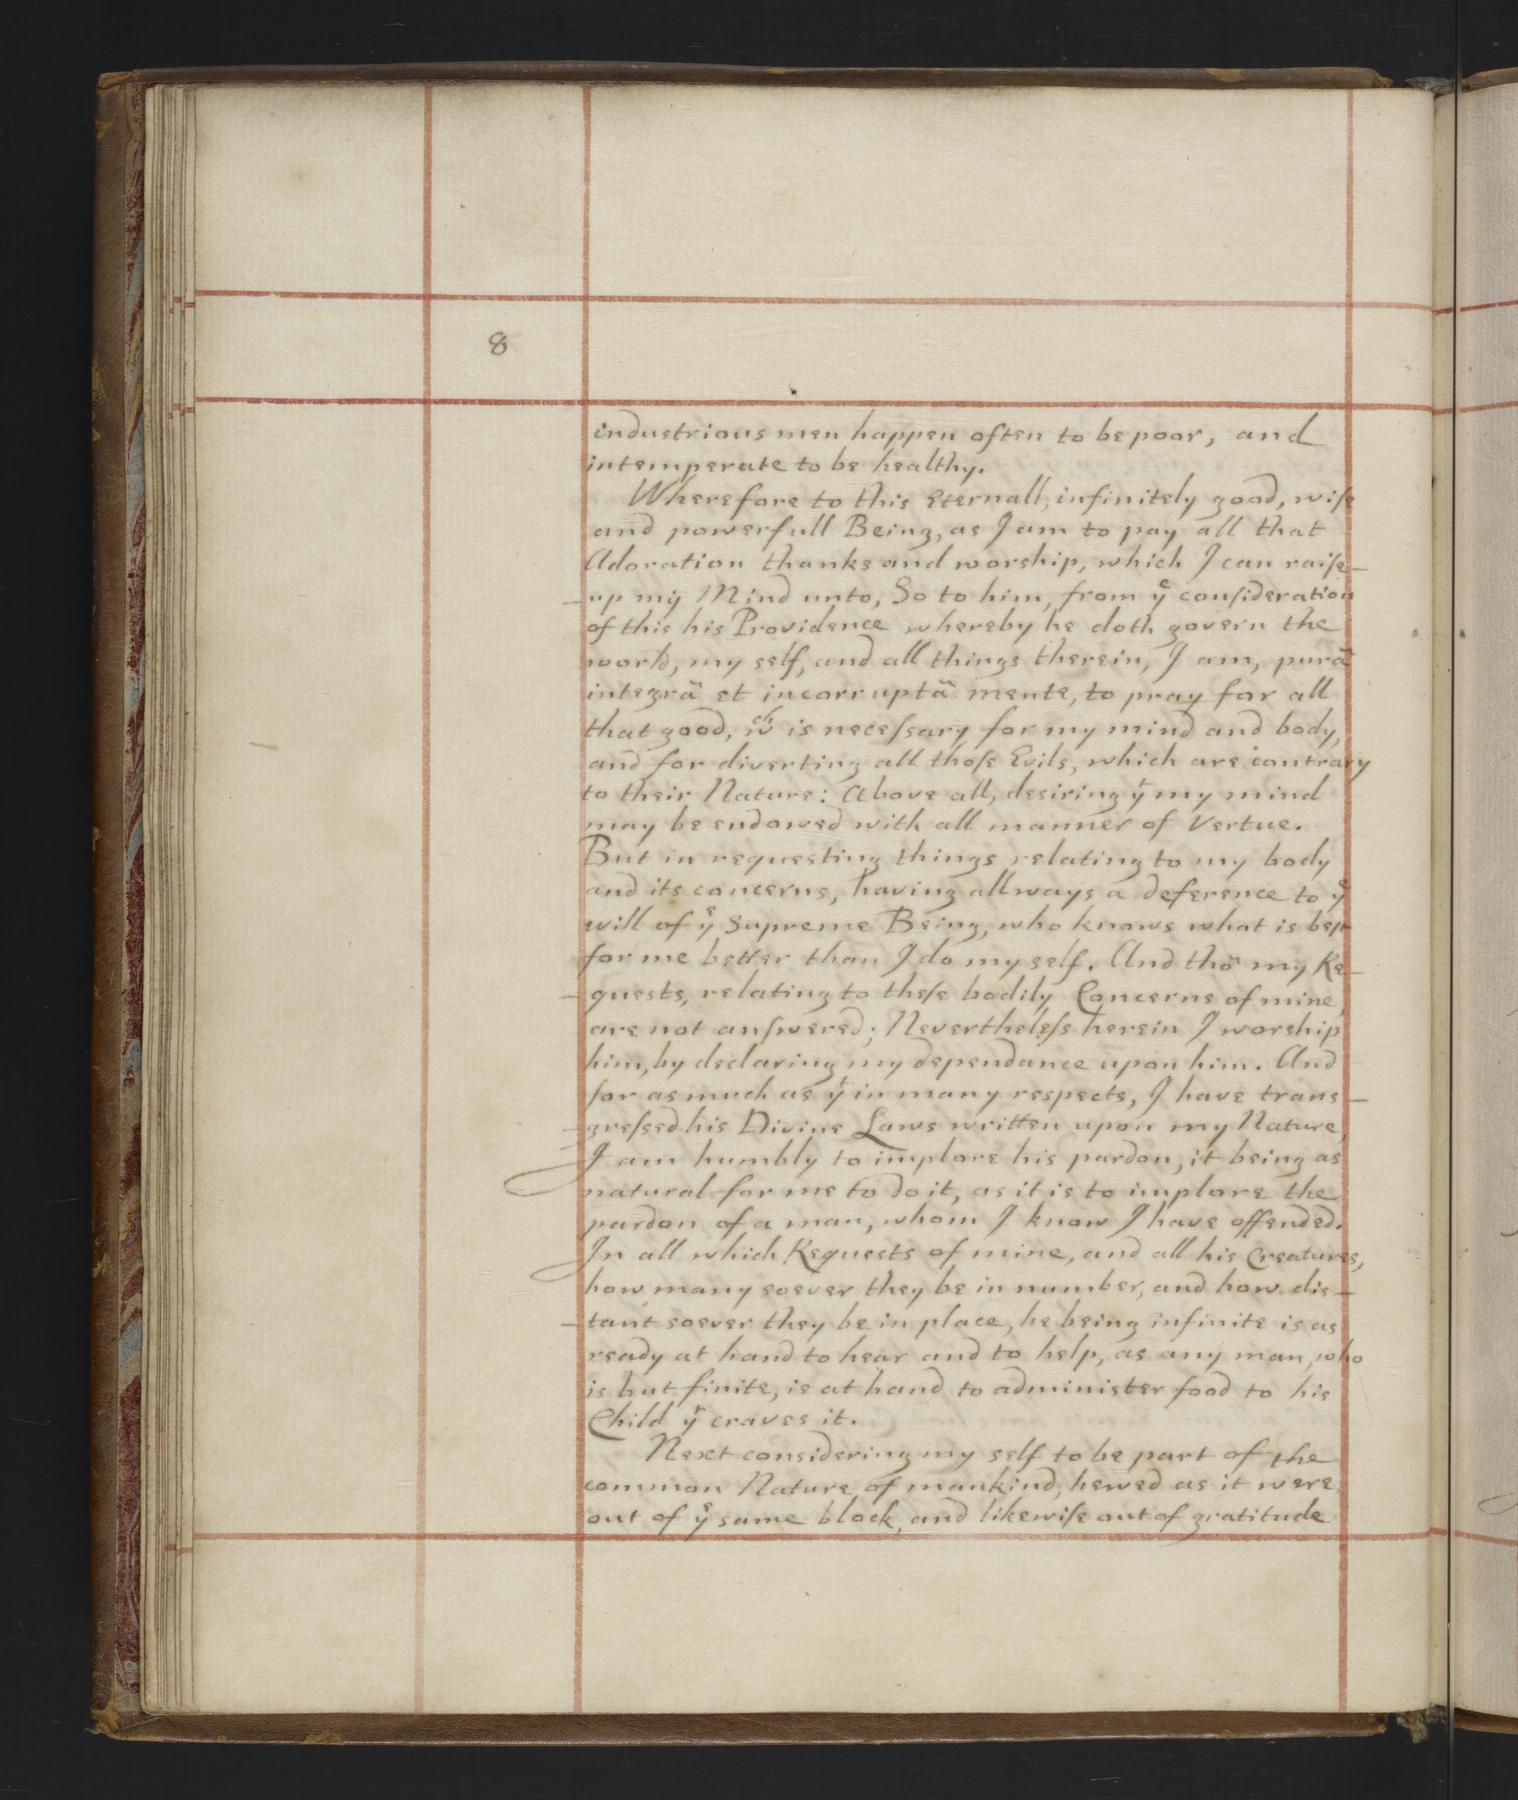 8
industrious men happen often to be poor, and
intemperate to be healthy.
Wherefore to this Eternall, infinitely good, wiſe
and powerfull Being, as I am to pay all that
Adoration thanks and worship, which I can raiſe-
-up my Mind unto, So to him, from yᵉ conſideration
of this his Providence whereby he doth govern the
world, my self, and all things therein, I am, purâ
integrâ et incorruptâ mente, to pray for all
that good, wᶜʰ is neceſsary for my mind and body,
and for diverting all thoſe Evils, which are contrary
to their Nature: Above all, desiring yᵗ my mind
may be endowed with all manner of Vertue.
But in requesting things relating to my body
and its concerns, having allways a deference to yᵉ
will of yᵉ Supreme Being, who knows what is beſt
for me better than I do my self. And thô my Re-
-quests, relating to theſe bodily Concerns of mine,
are not anſwered; Nevertheleſs herein I worship
him, by declaring my dependance upon him. And
for as much as yᵗ in many respects, I have trans-
-greſsed his Divine Laws written upon my Nature,
I am humbly to implore his pardon, it being as
natural for me to do it, as it is to implore the
pardon of a man, whom I know I have offended.
In all which Requests of mine, and all his Creatures,
how many soever they be in number, and how dis-
-tant soever they be in place, he being infinite is as
ready at hand to hear and to help, as any man, who
is but finite, is at hand to administer food to his
Child yᵗ craves it.
Next considering my self to be part of the
common Nature of mankind, hewed as it were
out of yᵉ same block, and likewiſe out of gratitude